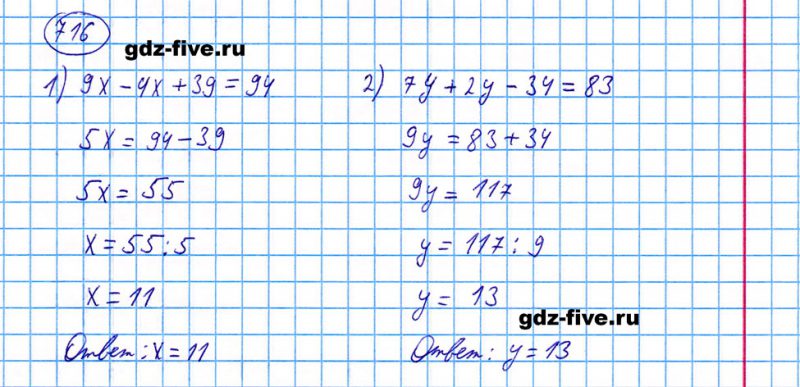 716
gdz-five.ru
1) 9x - 4x + 39 = 94
5x = 94 - 39
5x = 55
x = 55 : 5
x = 11
Ответ: x = 11
2) 7y + 2y - 34 = 83
9y = 83 + 34
9y = 117
y = 117 : 9
y = 13
gdz-five.ru
Ответ: y = 13